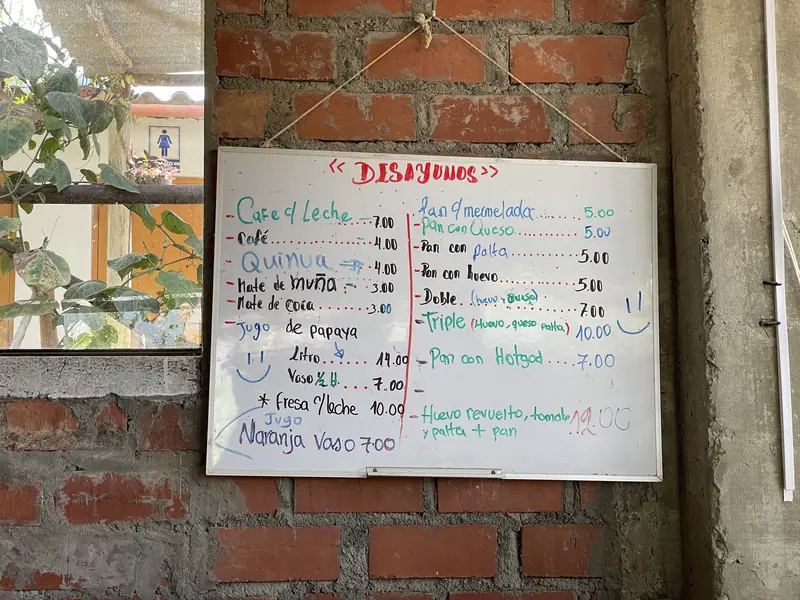 << DISAYUNOS >>
- Cafe c/ Leche - 7.00
- Café ........ - 4.00
- Quinua 4.00
- Mate de muña - 3.00
- Mate de coca ... 3.00
- Jugo de papaya
litro ...... 14.00
Vaso ½ lt. .... 7.00
* fresa c/leche 10.00
Jugo
Naranja Vaso 7.00
- Pan c/ mermelada ...... 5.00
- pan con Queso ...... 5.00
- Pan con palta ...... 5.00
- Pan con huevo ...... 5.00
- Doble. (huevo y queso) ...... 7.00
- Triple (Huevo, queso palta) 10.00
- Pan con Hotgod .... 7.00
-
- Huevo revuelto, tomate 12.00
y palta + pan